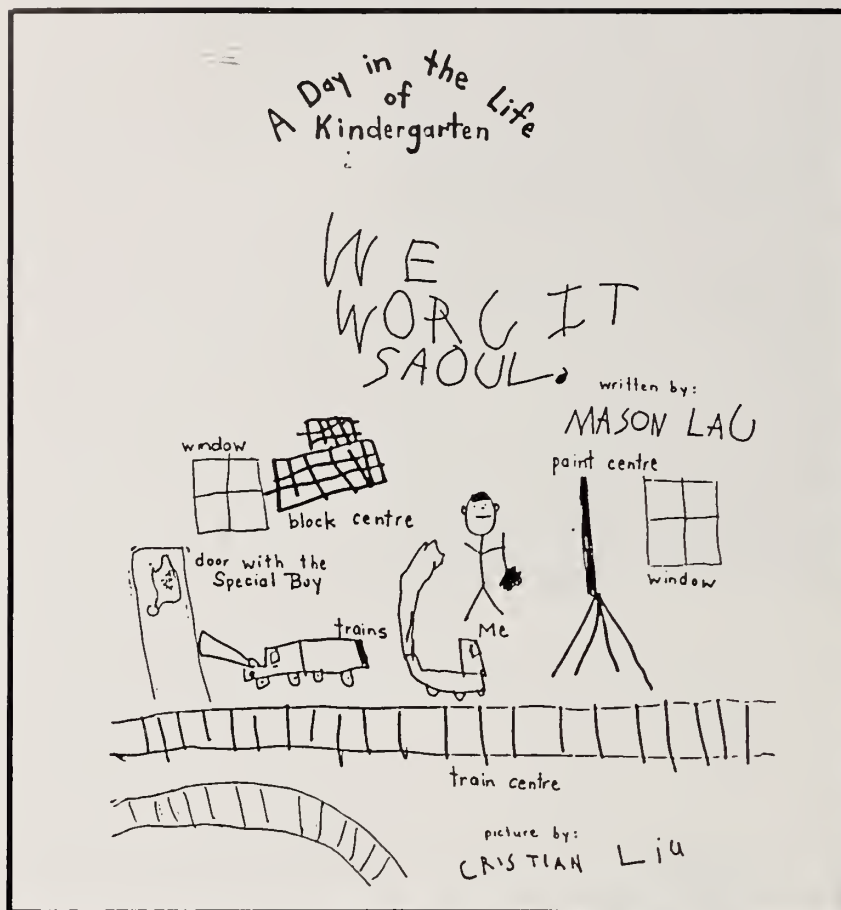 A Day in the Life
of
Kindergarten
WE
WORC IT
SAOUL.
written by:
MASON LAU
window
block centre
paint centre
window
door with the
Special Boy
trains
Me
train centre
picture by:
CRISTIAN Liu